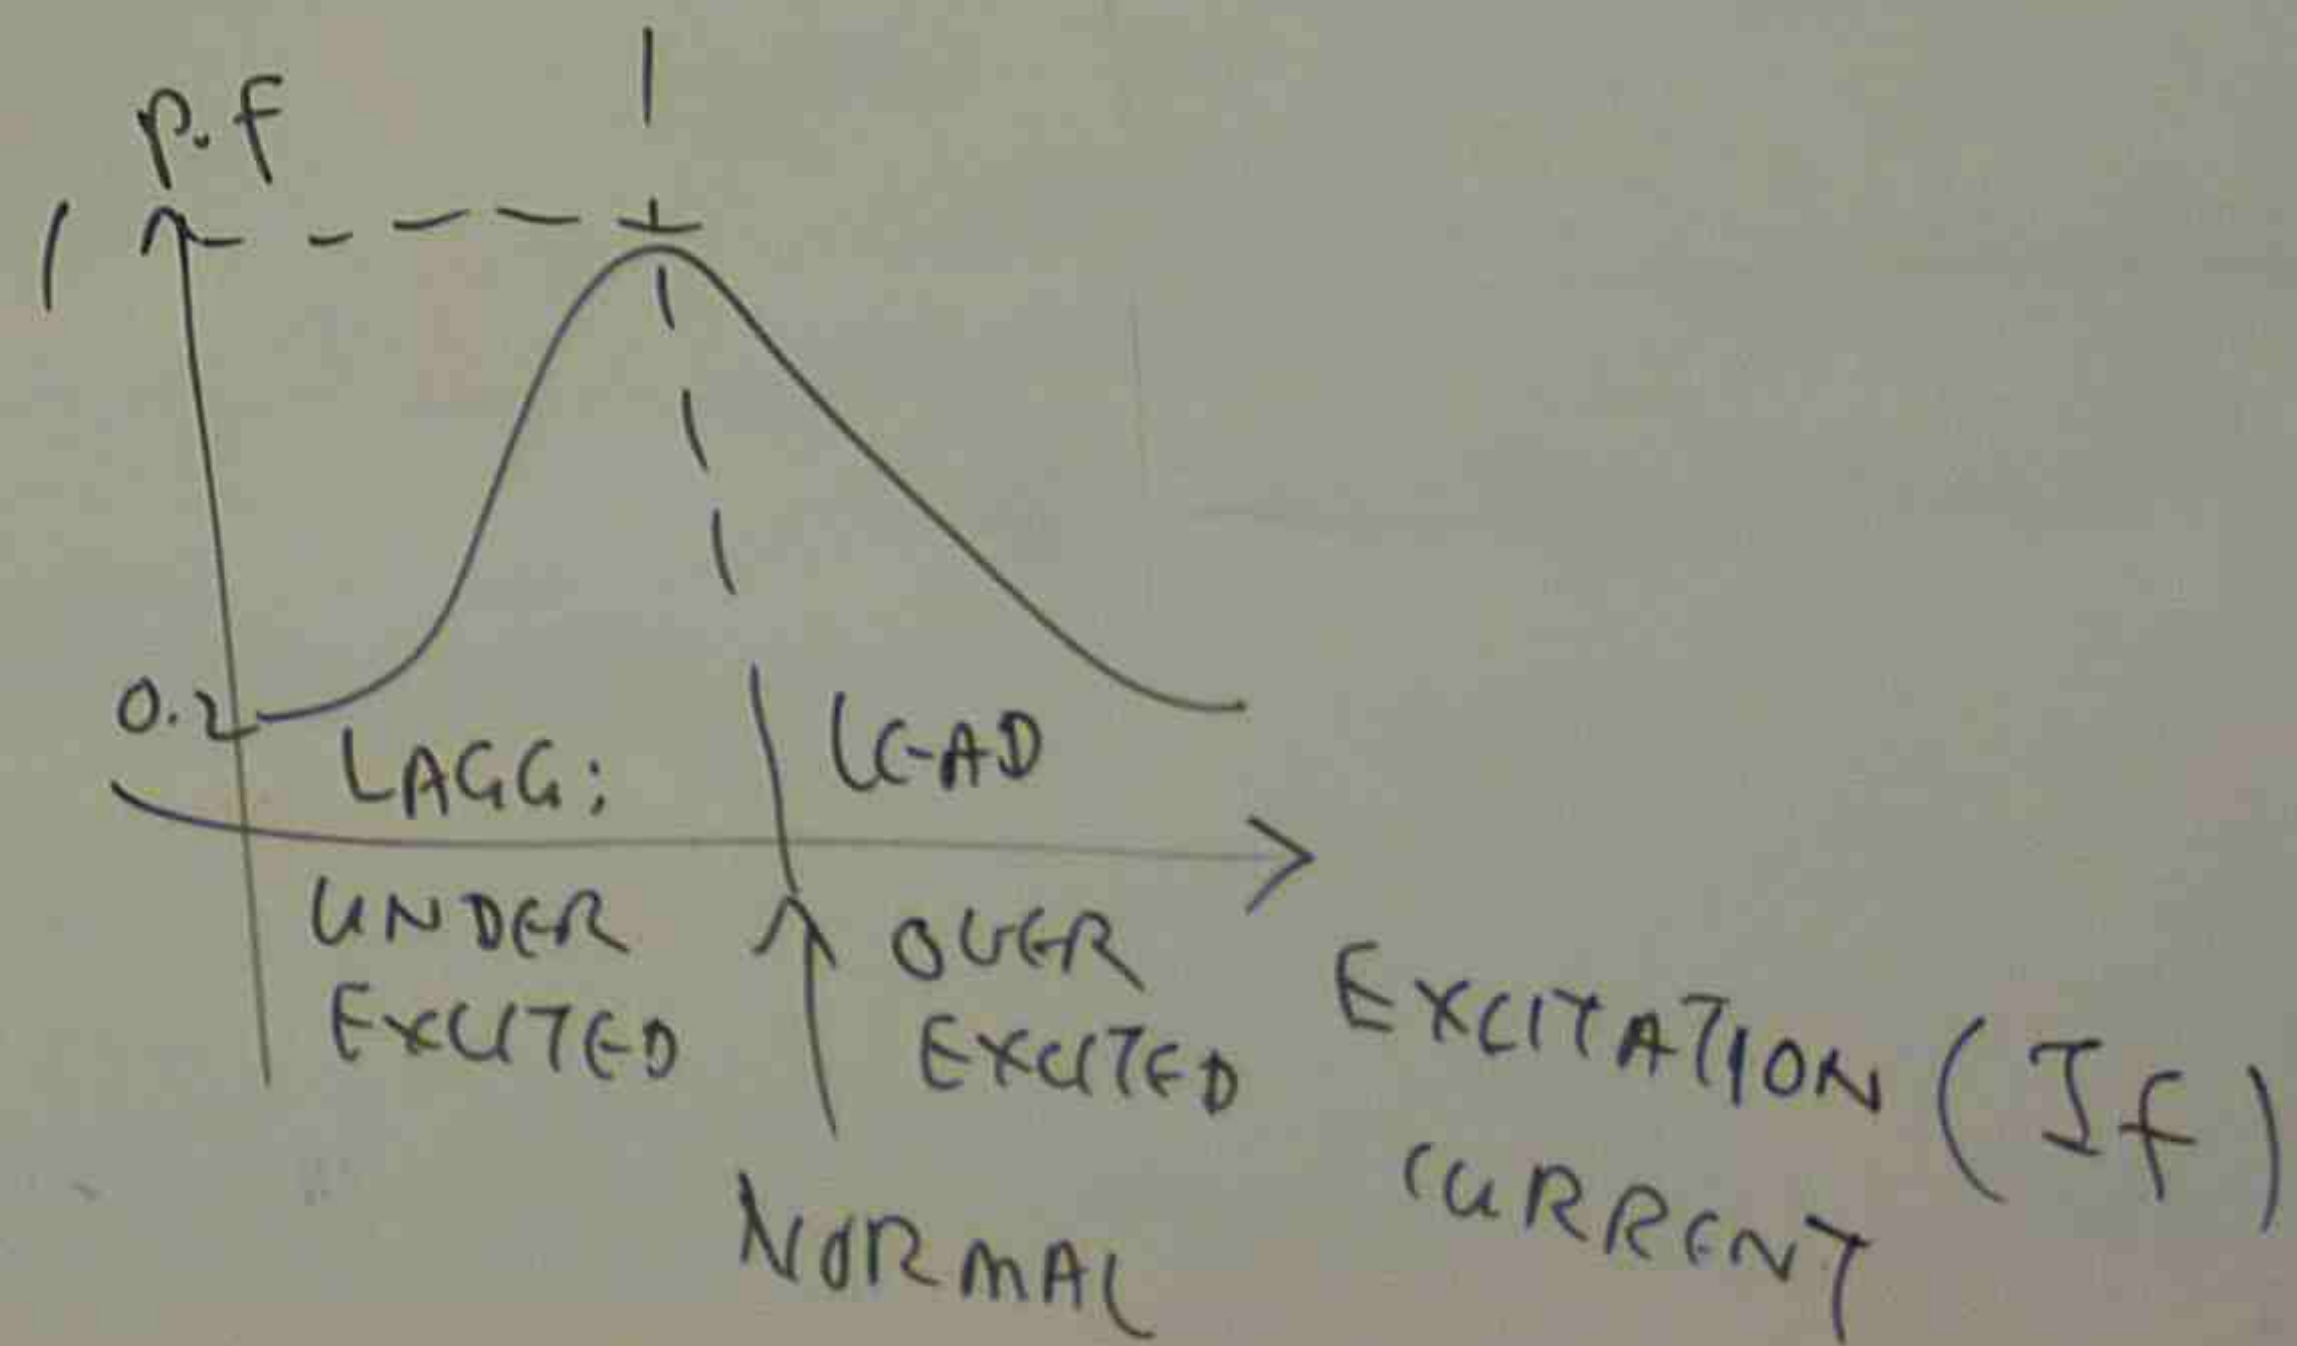 1
p.f
1
0.2
LAGG:
LEAD
UNDER
EXCITED
OVER
EXCITED
NORMAL
EXCITATION (If)
CURRENT